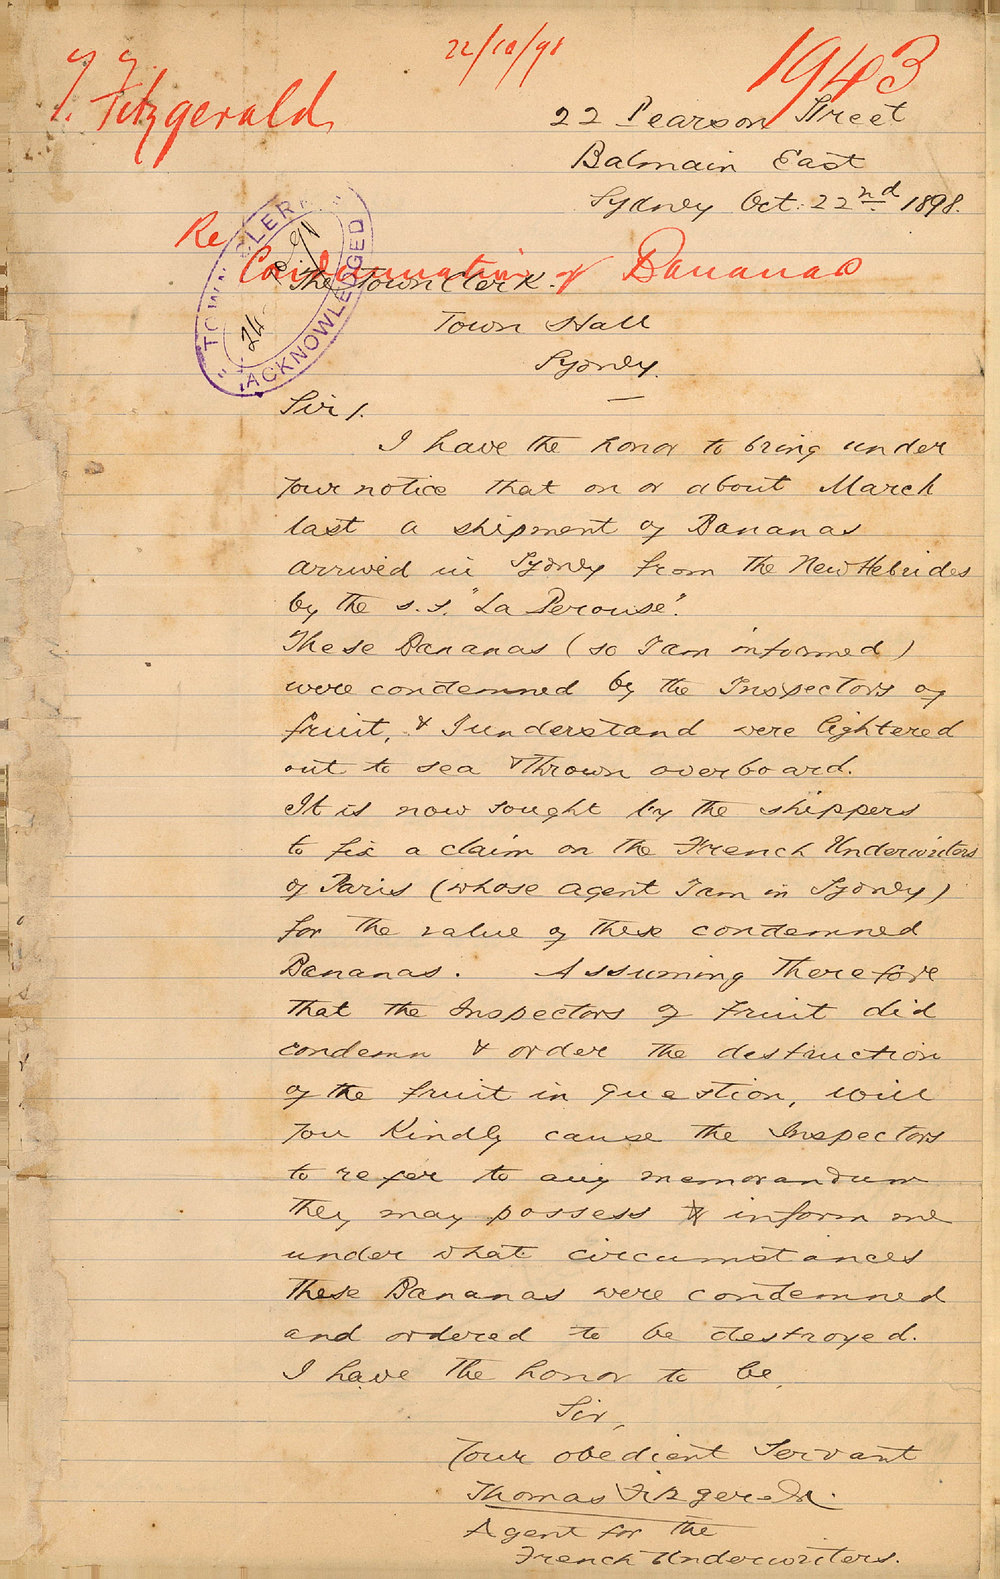 22/10/98
1943
T. Fitzgerald
22 Pearson Street
Balmain East
Sydney Oct: 22nd 1898.
Re
Condemnation of Bananas
"TOWN CLERK"
24
"ACKNOWLEDGED
The Town Clerk.
Town Hall
Sydney.
Sir/.
I have the honor to bring under
your notice that on or about March
last a shipment of Bananas
arrived in Sydney from the New Hebrides
by the s.s. "La Perouse".
These Bananas (so I am informed)
were condemned by the Inspectors of
fruit, & I understand were lightered
out to sea & thrown overboard.
It is now sought by the shippers
to fix a claim on the French Underwriters
of Paris (whose agent I am in Sydney)
for the value of these condemned
Bananas. Assuming therefore
that the Inspectors of Fruit did
condemn & order the destruction
of the fruit in question, will
you Kindly cause the Inspectors
to refer to any memorandum
they may possess & inform me
under what circumstances
these Bananas were condemned
and ordered to be destroyed.
I have the honor to be,
Sir,
Your obedient Servant
Thomas Fitzgerald.
Agent for the
French Underwriters.